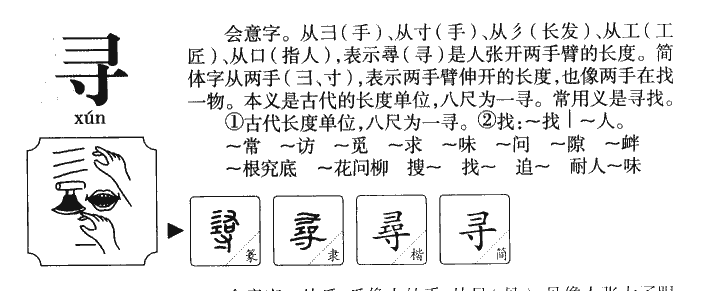 寻
xún
会意字。从彐(手)、从寸(手)、从彡(长发)、从工(工
匠)、从口(指人),表示尋(寻)是人张开两手臂的长度。简
体字从两手(彐、寸),表示两手臂伸开的长度,也像两手在找
一物。本义是古代的长度单位,八尺为一寻。常用义是寻找。
①古代长度单位,八尺为一寻。②找:~找|~人。
~常 ~访 ~觅 ~求 ~味 ~问 ~隙 ~衅
~根究底 ~花问柳 搜~ 找~ 追~ 耐人~味
尋 篆 尋 隶 尋 楷 寻 简